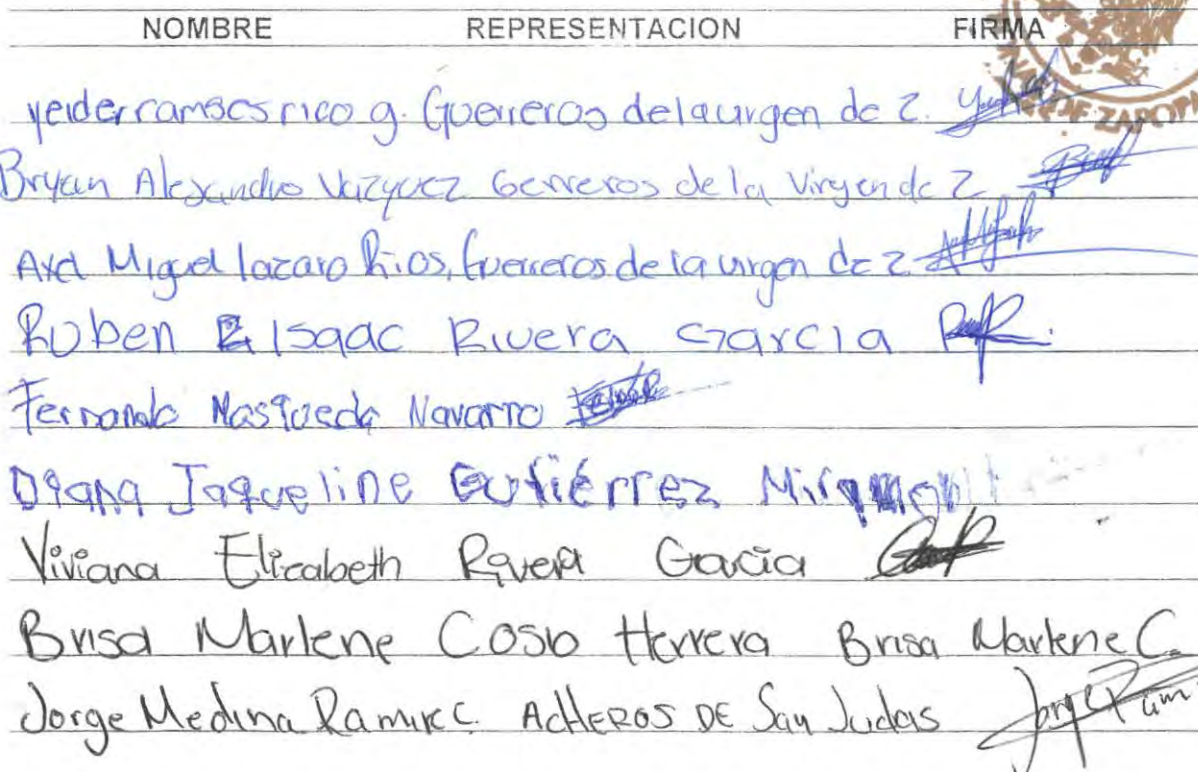 NOMBRE REPRESENTACION FIRMA
yeider ramses rico g. Guerreros de la virgen de Z.
Bryan Alejandro Vazquez Gerreros de la Virgen de Z
Axel Miguel lazaro Rios, Guerreros de la virgen de Z
Ruben Isaac Rivera Garcia
Fernando Mosqueda Navarro
Diana Jaqueline Gutiérrez
Viviana Elizabeth Rivera Garcia
Brisa Marlene Cosio Herrera Brisa Marlene C.
Jorge Medina Ramirez. AcHeROS DE San Judas